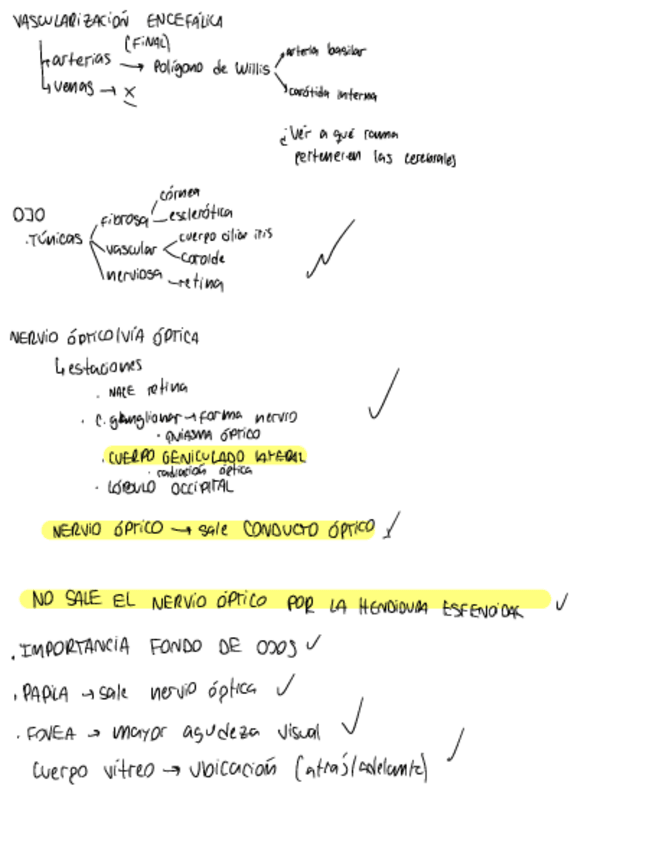 VASCULARIZACIÓN ENCEFÁLICA
(FINAL)
arterias → Polígono de Willis
arteria basilar
carótida interna
venas → x
¿Ver a qué rama
pertenecen las cerebrales
OJO
. TÚNICAS
fibrosa
córnea
esclerótica
vascular
cuerpo ciliar iris
coroide
nerviosa
retina
NERVIO ÓPTICO/VÍA ÓPTICA
↳ estaciones
· NACE retina
· C. ganglionar → forma nervio
· QUIASMA ÓPTICO
· CUERPO GENICULADO LATERAL
· radiación óptica
· LÓBULO OCCIPITAL
NERVIO ÓPTICO → sale CONDUCTO ÓPTICO ✓
NO SALE EL NERVIO ÓPTICO POR LA HENDIDURA ESFENOIDAL ✓
. IMPORTANCIA FONDO DE OJOS ✓
. PAPILA → sale nervio óptica ✓
. FOVEA → mayor agudeza visual ✓
Cuerpo vítreo → ubicación (atrás/adelante) ✓